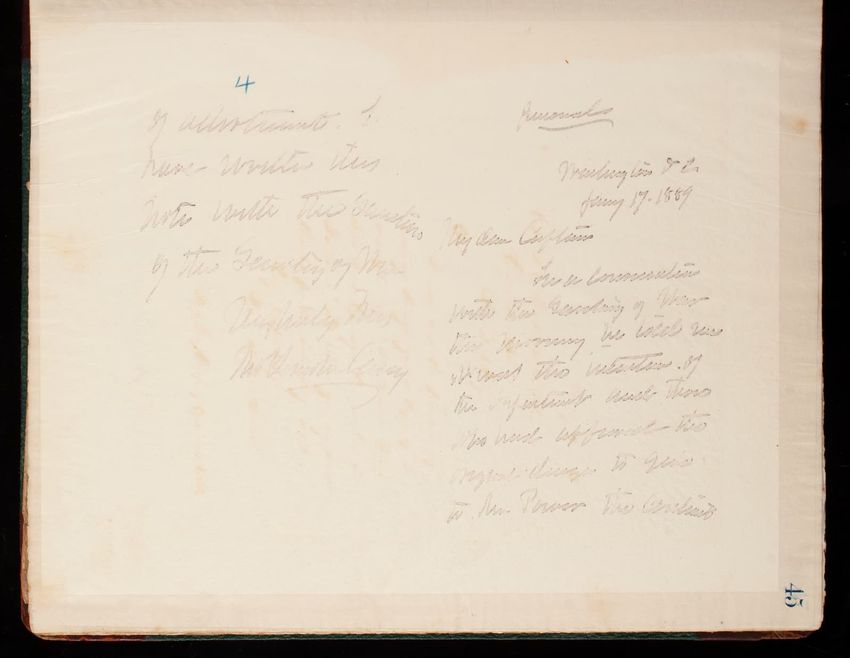 4
of adjustment. I
have written this
note with the sanction
of the Secretary of War
Very truly yours
Thos Lincoln Casey
Personal
Washington D.C.
Jany 17. 1889
My dear Captain
In a conversation
with the Secretary of War
this morning he told me
it was the intention of
the and those
who had approved the
original design to give
to Mr. Power the
45